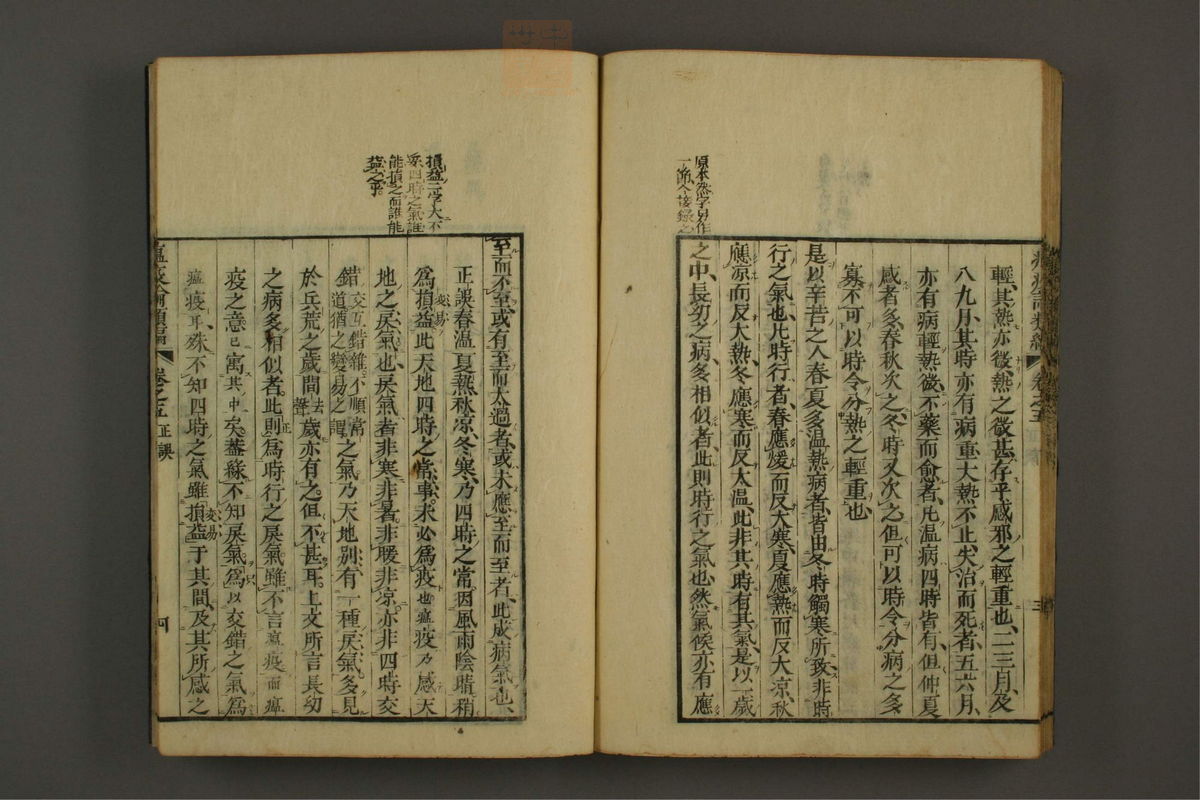 原本然字另作
一節今接錄之
輕其熱亦微熱之微甚存乎感邪之輕重也二三月及
八九月其時亦有病重大熱不止失治而死者五六月
亦有病輕熱微不藥而愈者凡温病四時皆有但仲夏
感者多春秋次之冬時又次之但可以時令分病之多
寡不可以時令分熱之輕重也
是以辛苦之人春夏多温熱病者皆由冬時觸寒所致非時
行之氣也凡時行者春應煖而反大寒夏應熱而反大凉秋
應凉而反大熱冬應寒而反大温此非其時有其氣是以一歲
之中長幼之病多相似者此則時行之氣也然氣候亦有應
卷之五
三
損益二字大不
妥四時之氣誰
能損之而誰能
益之乎
至而不至或有至而太過者或未應至而至者此成病氣也
正誤春温夏熱秋凉冬寒乃四時之常因風雨陰晴稍
爲損益變易此天地四時之常事未必爲疫也瘟疫乃感天
地之戾氣也戾氣者非寒非暑非暖非凉亦非四時交
錯交互錯雜不順常道猶之變易之謂之氣乃天地别有一種戾氣多見
於兵荒之歲間去聲歲亦有之但不甚耳上文所言長幼
之病多相似者此則正爲時行之戾氣雖不言瘟疫而瘟
疫之意已寓其中矣蓋緣不知戾氣爲以交錯之氣爲
瘟疫耳殊不知四時之氣雖損益變易于其間及其所感之
瘟疫論類編
卷之五
正誤
四